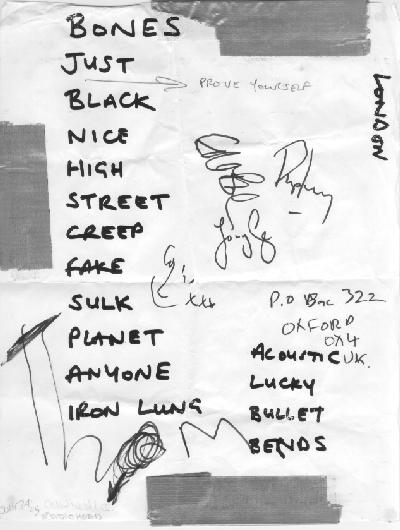 BONES
JUST
PROVE YOURSELF
BLACK
NICE
HIGH
STREET
CREEP
FAKE
SULK
PLANET
ANYONE
IRON LUNG
LONDON
xxx
P.O Box 322
OXFORD
OX4
UK.
ACOUSTIC
LUCKY
BULLET
BENDS
Thom
RADIOHEAD